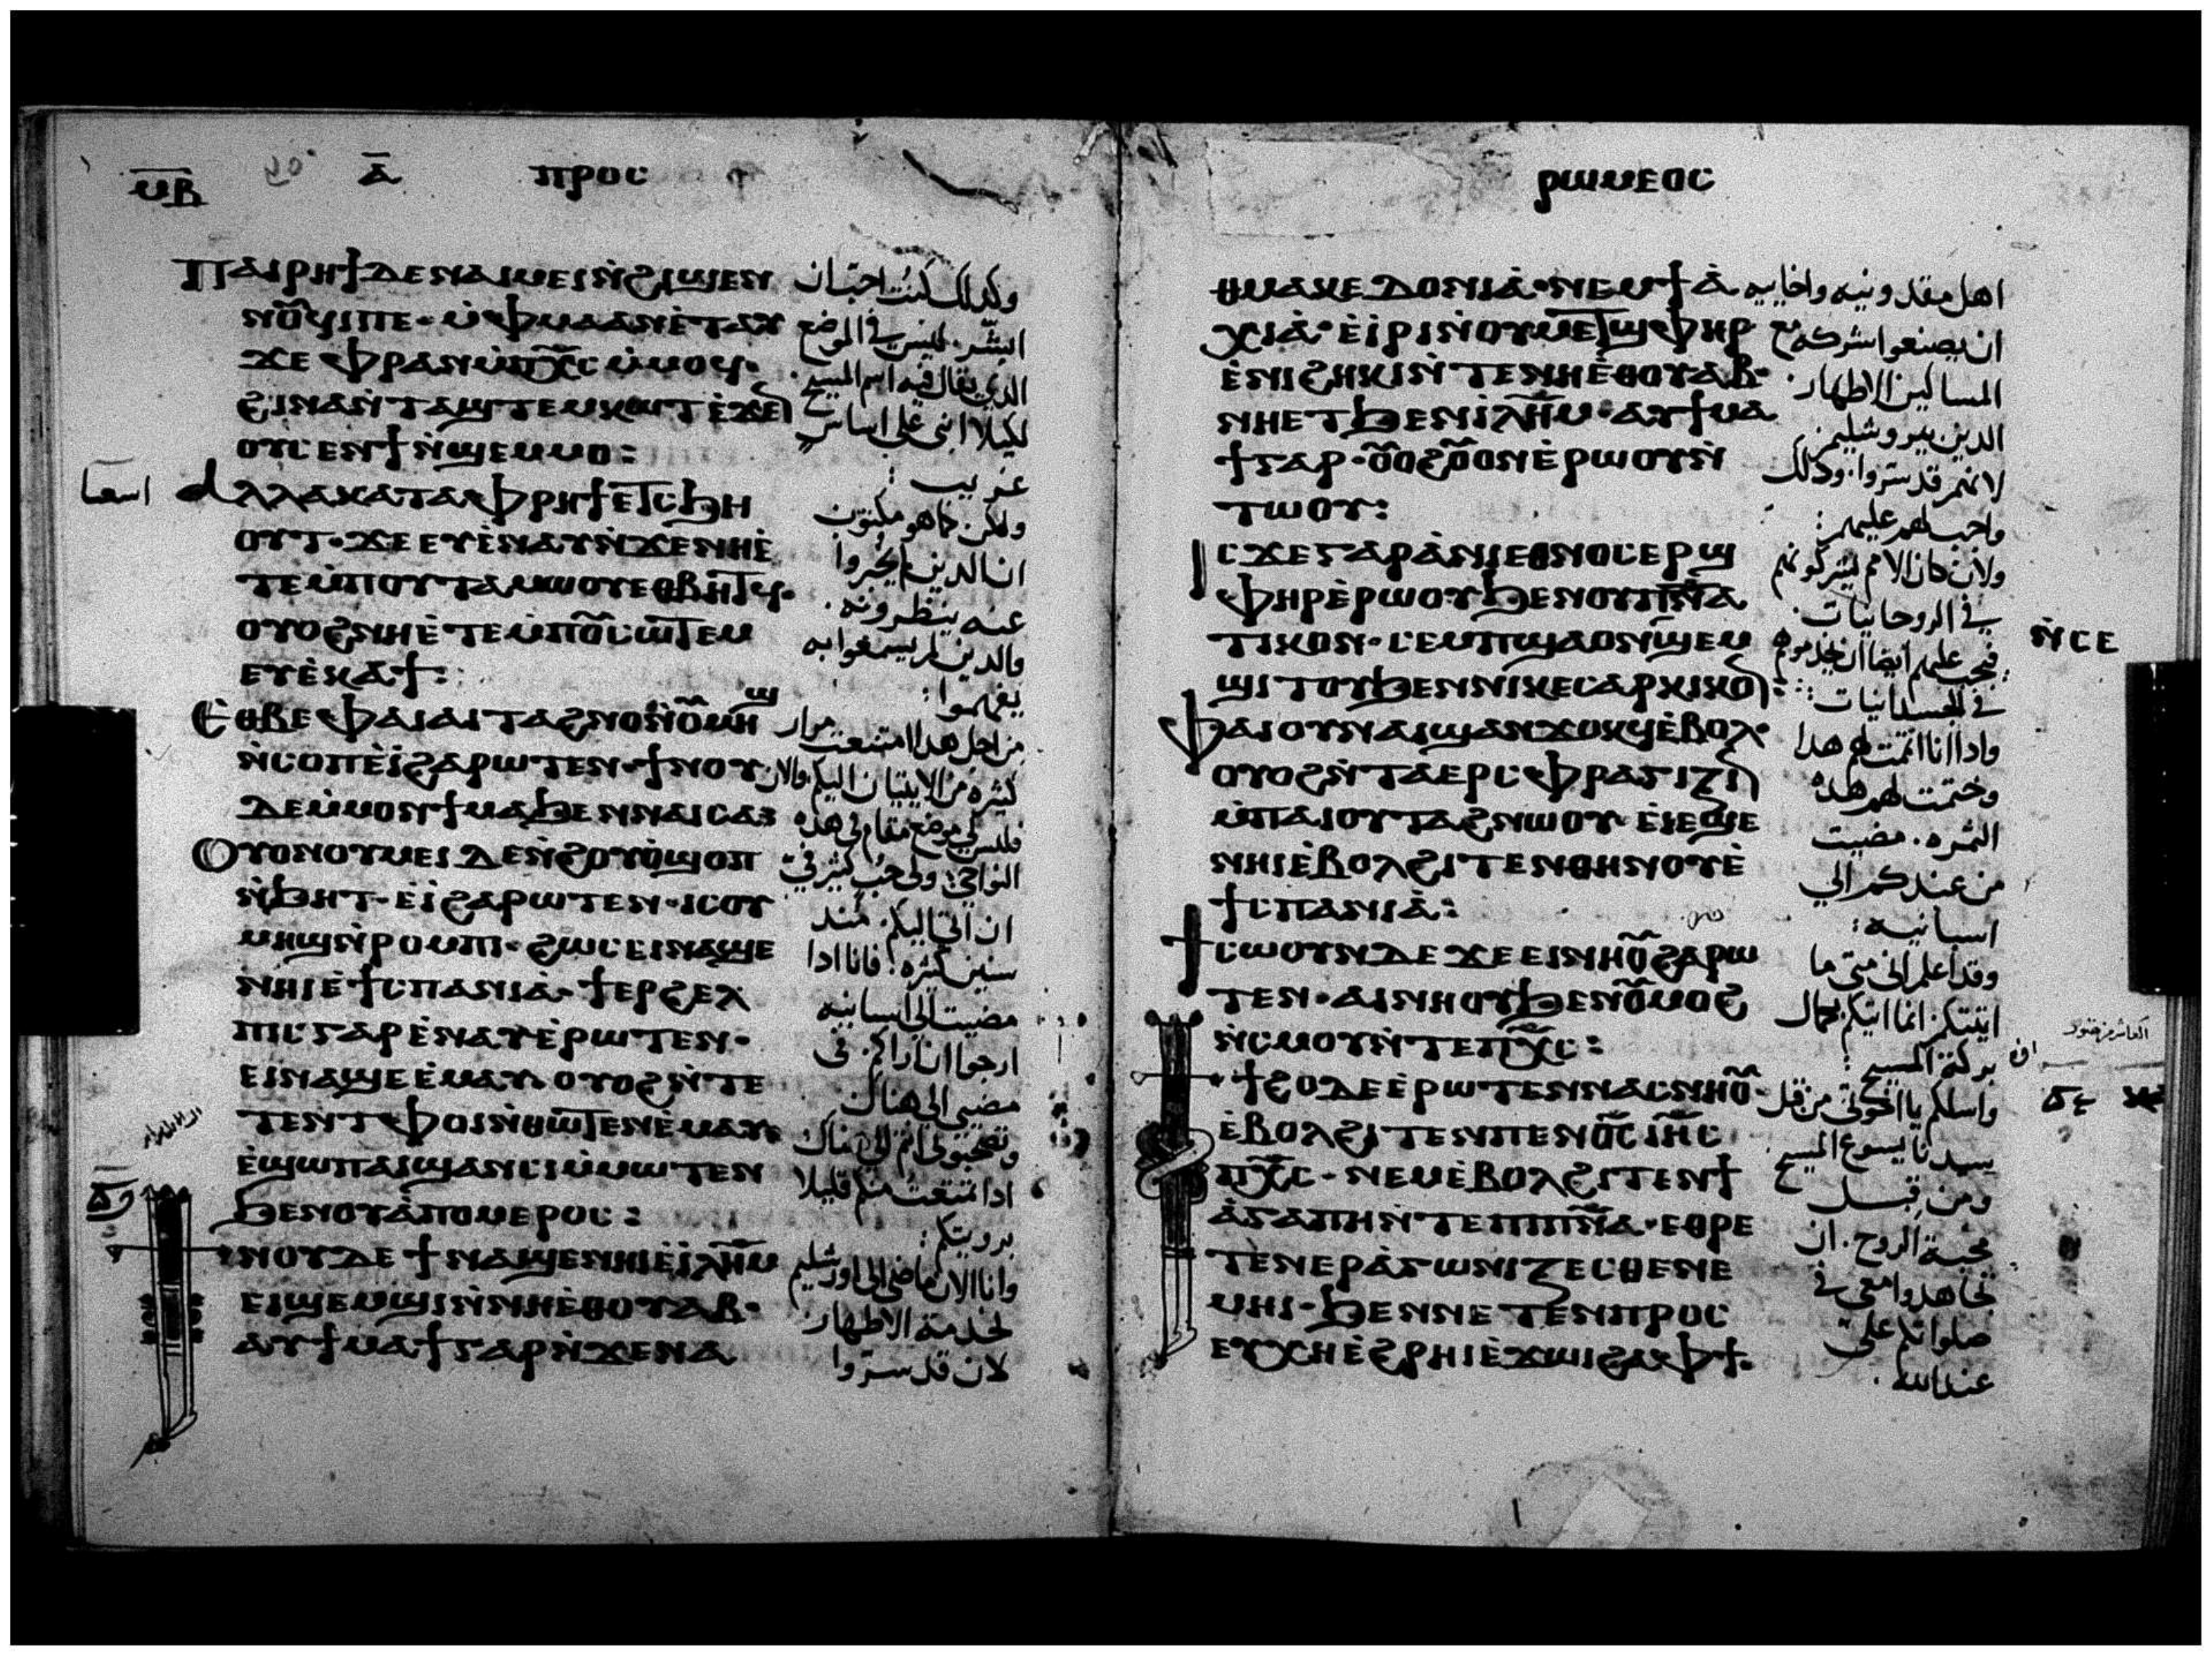 ⲙ̅ⲃ̅ ⲁ̅ ⲡⲣⲟⲥ
ⲡⲁⲓⲣⲏϯⲇⲉⲛⲁⲓⲙⲉⲓⲛ̀ϩⲓϣⲉⲛ
ⲛⲟⲩϥⲓⲡⲉ· ⲙ̀ⲫⲙⲁⲁⲛⲉ̀ⲧⲁⲩ
ϫⲉⲫⲣⲁⲛⲙ̀ⲡⲭ̅ⲥ̅ⲙ̀ⲙⲟϥ·
ϩⲓⲛⲁⲛ̀ⲧⲁϣⲧⲉⲙⲕⲱⲧⲉ̀ϫⲉⲛ
ⲟⲩⲥⲉⲛϯⲛ̀ϣⲉⲙⲙⲟ:
ⲁⲗⲗⲁⲕⲁⲧⲁⲫⲣⲏϯⲉⲧⲥϧⲏ
ⲟⲩⲧ· ϫⲉⲉⲩⲉ̀ⲛⲁⲩⲛ̀ϫⲉⲛⲏⲉ̀
ⲧⲉⲙ̀ⲡⲟⲩⲧⲁⲙⲱⲟⲩⲉⲑⲃⲏⲧϥ·
ⲟⲩⲟϩⲛⲏⲉ̀ⲧⲉⲙ̀ⲡⲟⲩⲥⲱⲧⲉⲙ
ⲉⲩⲉ̀ⲕⲁϯ:
ⲉⲑⲃⲉⲫⲁⲓⲁⲓⲧⲁϩⲛⲟⲛ̀ⲟⲩⲙⲏϣ
ⲛ̀ⲥⲟⲡⲉ̀ⲓ̀ϩⲁⲣⲱⲧⲉⲛ· ϯⲛⲟⲩ
ⲇⲉⲙ̀ⲙⲟⲛϯⲙⲁϧⲉⲛⲛⲁⲓⲥⲁ
ⲟⲩⲟⲛⲟⲩⲙⲉⲓⲇⲉⲛ̀ϩⲟⲩⲟ̀ϣⲟⲡ
ⲛ̀ϧⲏⲧ· ⲉ̀ⲓ̀ϩⲁⲣⲱⲧⲉⲛ· ⲓⲥⲟⲩ
ⲙⲏϣⲛ̀ⲣⲟⲙⲡⲓ· ϩⲱⲥⲉⲓⲛⲁϣⲉ
ⲛⲏⲓⲉ̀ϯⲥⲡⲁⲛⲓⲁ̀· ϯⲉⲣϩⲉⲗ
ⲡⲓⲥⲅⲁⲣⲉ̀ⲛⲁⲩⲉ̀ⲣⲱⲧⲉⲛ·
ⲉⲓⲛⲁϣⲉⲉ̀ⲙⲁⲩ ⲟⲩⲟϩⲛ̀ⲧⲉ
ⲧⲉⲛⲧⲫⲟⲓⲛ̀ⲑⲱⲧⲉⲛⲉ̀ⲙⲁⲩ
ⲉ̀ϣⲱⲡⲁⲓϣⲁⲛⲥⲓⲙ̀ⲙⲱⲧⲉⲛ
ϧⲉⲛⲟⲩⲁ̀ⲡⲟⲙⲉⲣⲟⲥ:
ⲛⲟⲩⲇⲉϯⲛⲁϣⲉⲛⲏⲓⲉ̀ⲓ̀ⲗ̅ⲏ̅ⲙ̅
ⲉⲓϣⲉⲙϣⲓⲛ̀ⲛⲏⲉ̀ⲑⲟⲩⲁⲃ·
ⲁⲩϯⲙⲁϯⲅⲁⲣⲛ̀ϫⲉⲛⲁ
وكذلك كنت احب ان
ابشر. ليس في الموضع
الذي يقال فيه اسم المسيح.
لكيلا ابني على اساس
غريب:
ولكن كما هو مكتوب
ان الذين لم يخبروا
عنه ينظرونه.
والذين لم يسمعوا به
يفهموا:
من اجل هذا امتنعت مرار
كثيره من الاتيان اليكم والان
فليس لي موضع مقام في هذه
النواحي: ولي حب كثير في
ان اتي اليكم. منذ
سنين كثيره: فانا اذا
مضيت الى اسبانيه
ارجوا ان اراكم. في
مضيي الى هناك
اذا تمتعت منكم قليلا
برويتكم:
وانا الان ماضي الى اورشليم
لخدمة الاطهار:
لان قد سروا
ⲣⲱⲙⲉⲟⲥ
ⲑⲙⲁⲕⲉⲇⲟⲛⲓⲁ̀· ⲛⲉⲙϯⲁ̀
ⲭⲓⲁ̀· ⲉ̀ⲓ̀ⲣⲓⲛ̀ⲟⲩⲙⲉⲧϣⲫⲏⲣ
ⲉ̀ⲛⲓϩⲏⲕⲓⲛ̀ⲧⲉⲛⲏⲉ̀ⲑⲟⲩⲁⲃ·
ⲛⲏⲉⲧϧⲉⲛⲓ̀ⲗ̅ⲏ̅ⲙ̅· ⲁⲩϯⲙⲁ
ϯⲅⲁⲣ· ⲟⲩⲟϩⲟⲩⲟⲛⲉ̀ⲣⲱⲟⲩⲛ̀
ⲧⲱⲟⲩ:
ⲓⲥϫⲉⲅⲁⲣⲁ̀ⲛⲓⲉⲑⲛⲟⲥⲉⲣϣ
ⲫⲏⲣⲉ̀ⲣⲱⲟⲩϧⲉⲛⲟⲩⲡ̅ⲛ̅ⲁ̅
ⲧⲓⲕⲟⲛ· ⲥⲉⲙⲡϣⲁⲟⲛⲛ̀ϣⲉⲙ
ϣⲓⲧⲟⲩϧⲉⲛⲛⲓⲕⲉⲥⲁⲣⲕⲓⲕⲟⲛ:
ⲫⲁⲓⲟⲩⲛⲁⲓϣⲁⲛϫⲟⲕϥⲉ̀ⲃⲟⲗ·
ⲟⲩⲟϩⲛ̀ⲧⲁⲉⲣⲥⲫⲣⲁⲅⲓⲍⲓⲛ
ⲙ̀ⲡⲁⲓⲟⲩⲧⲁϩⲛⲱⲟⲩ· ⲉⲓⲉϣⲉ
ⲛⲏⲓⲉ̀ⲃⲟⲗϩⲓⲧⲉⲛⲑⲏⲛⲟⲩⲉ̀
ϯⲥⲡⲁⲛⲓⲁ̀:
ϯⲥⲱⲟⲩⲛⲇⲉϫⲉⲉⲓⲛⲏⲟⲩϩⲁⲣⲱ
ⲧⲉⲛ· ⲁⲓⲛⲏⲟⲩϧⲉⲛⲟⲩⲙⲟϩ
ⲛ̀ⲥⲙⲟⲩⲛ̀ⲧⲉⲡⲭ̅ⲥ̅:
ϯϩⲟⲇⲉⲉ̀ⲣⲱⲧⲉⲛⲛⲁⲥⲛⲏⲟⲩ·
ⲉ̀ⲃⲟⲗϩⲓⲧⲉⲛⲡⲉⲛⲟ̅ⲥ̅ ⲓⲏ̅ⲥ̅
ⲡⲭ̅ⲥ̅· ⲛⲉⲙⲉ̀ⲃⲟⲗϩⲓⲧⲉⲛϯ
ⲁ̀ⲅⲁⲡⲏⲛ̀ⲧⲉⲡⲓⲡ̅ⲛ̅ⲁ̅· ⲉⲑⲣⲉ
ⲧⲉⲛⲉⲣⲁ̀ⲅⲱⲛⲓⲍⲉⲥⲑⲉⲛⲉ
ⲙⲏⲓ· ϧⲉⲛⲛⲉⲧⲉⲛⲡⲣⲟⲥ
ⲉⲩⲭⲏⲉ̀ϩⲣⲏⲓⲉ̀ϫⲱⲓϩⲁⲫϯ·
ⲛ̀ⲥⲉ
اهل مقدونيه واخاييه
ان يصنعوا شركه مع
المساكين الاطهار.
الذين بيروشليم:
لانهم قد سروا. وذلك
واجب لهم عليهم:
ولان كان الامم يشركونهم
في الروحانيات.
فيجب عليهم ايضا ان يخدموهم
في الجسدانيات:
واذا انا اتممت لهم هذا
وختمت لهم هذه
الثمره. مضيت
من عندكم الى
اسبانيه:
وقد اعلم اني متى ما
اتيتكم انما اتيكم بكمال
بركة المسيح:
واسلكم يا اخوتي من قبل
سيدنا يسوع المسيح
ومن قبل
محبة الروح. ان
تجاهدوا معي في
صلواتكم علي
عند الله.